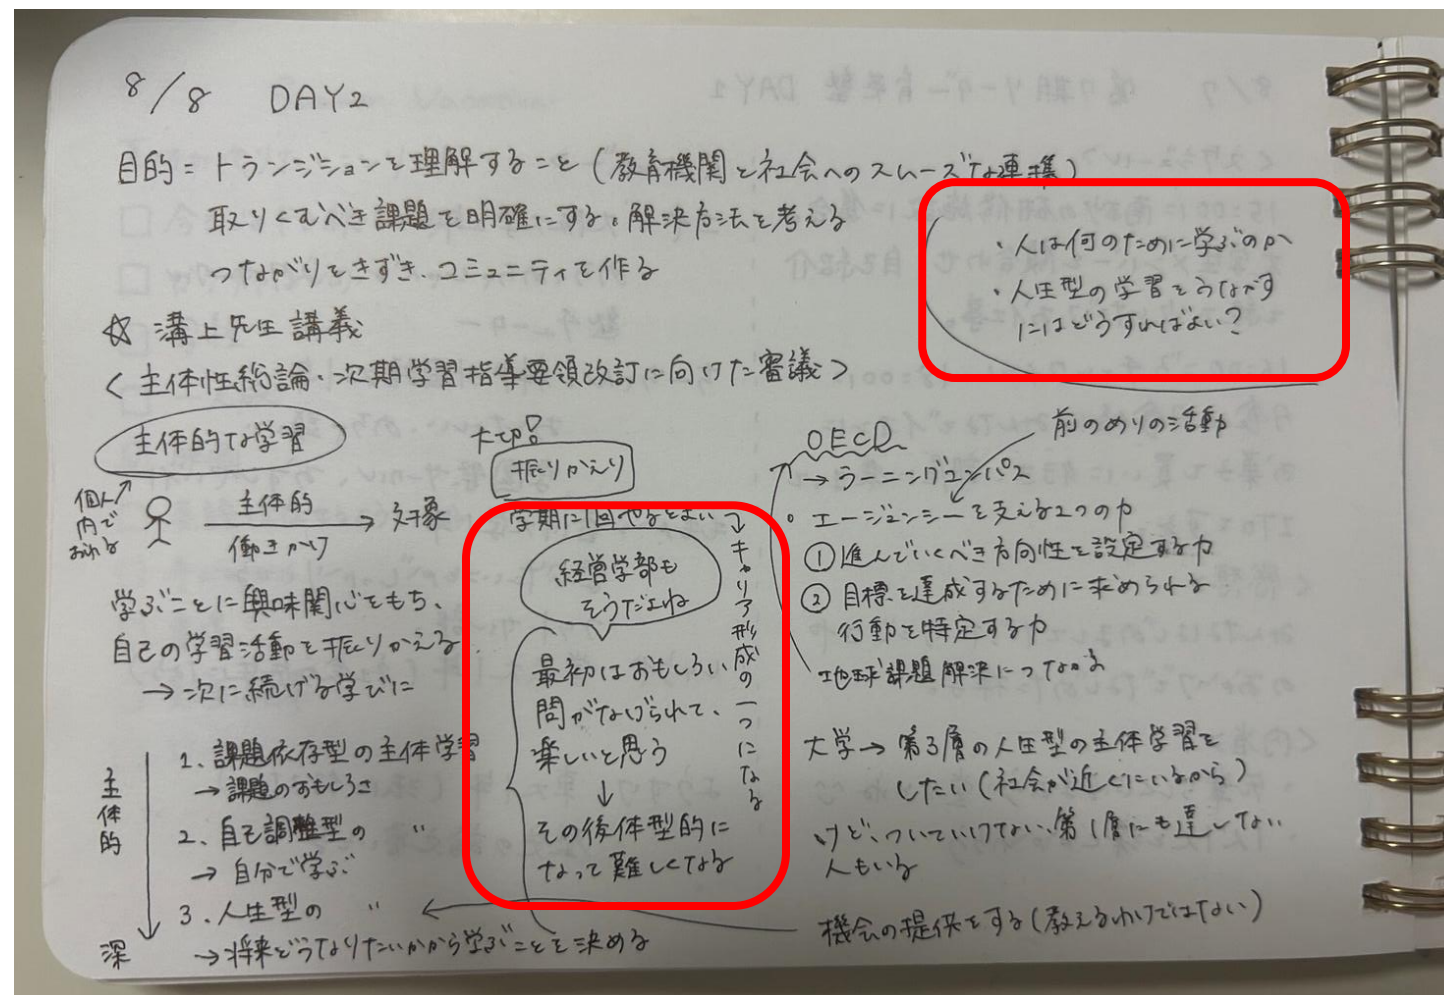 8/8 DAY2
目的 = トランジションを理解すること (教育機関と社会へのスムーズな連携)
取りくむべき課題を明確にする。解決方法を考える
つながりをきずき、コミュニティを作る
・人は何のために学ぶのか
・人生型の学習をうながす
にはどうすればよい?
☆ 溝上先生 講義
<主体性総論・次期学習指導要領改訂に向けた審議>
主体的な学習
個人
内で
主体的
働きかけ
→ 対象
学ぶことに興味関心をもち、
自己の学習活動を振りかえる
→次に続ける学びに
主体的
深
1. 課題依存型の主体学習
→課題のおもしろさ
2. 自己調整型の 〃
→ 自分で学ぶ
3. 人生型の 〃
→将来どうなりたいかから学ぶことを決める
大切!
振りかえり
学期に1回やるとよい
→キャリア形成の一つになる
経営学部も
そうだよね
最初はおもしろい
問がなげられて、
楽しいと思う
↓
その後体型的に
なって難しくなる
OECD
→ラーニングコンパス
前のめりの活動
。エージェンシーを支える2つの力
① 進んでいくべき方向性を設定する力
② 目標を達成するために求められる
行動を特定する力
地球課題解決につながる
大学→ 第3層の人生型の主体学習を
したい (社会が近くにいるから)
けど、ついていけない、第1層にも達してない
人もいる
機会の提供をする (教えるわけではない)